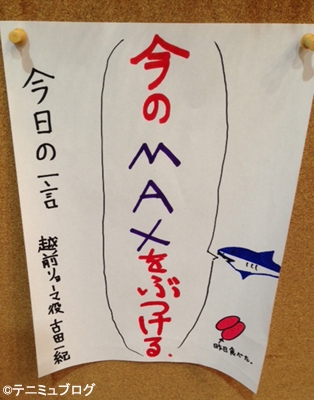 今日の一言
越前リョーマ役 古田一紀
今の
MAX
をぶつける.
昨日食べた.
©テニミュブログ